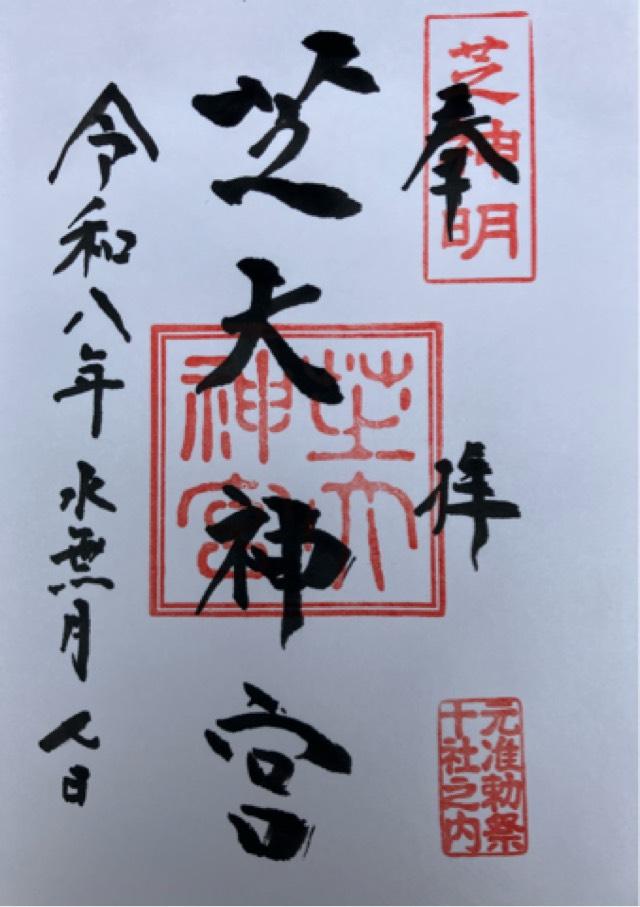 奉拝
芝神明
元准勅祭
十社之内
芝大神宮
芝大
神宮
令和八年水無月八日